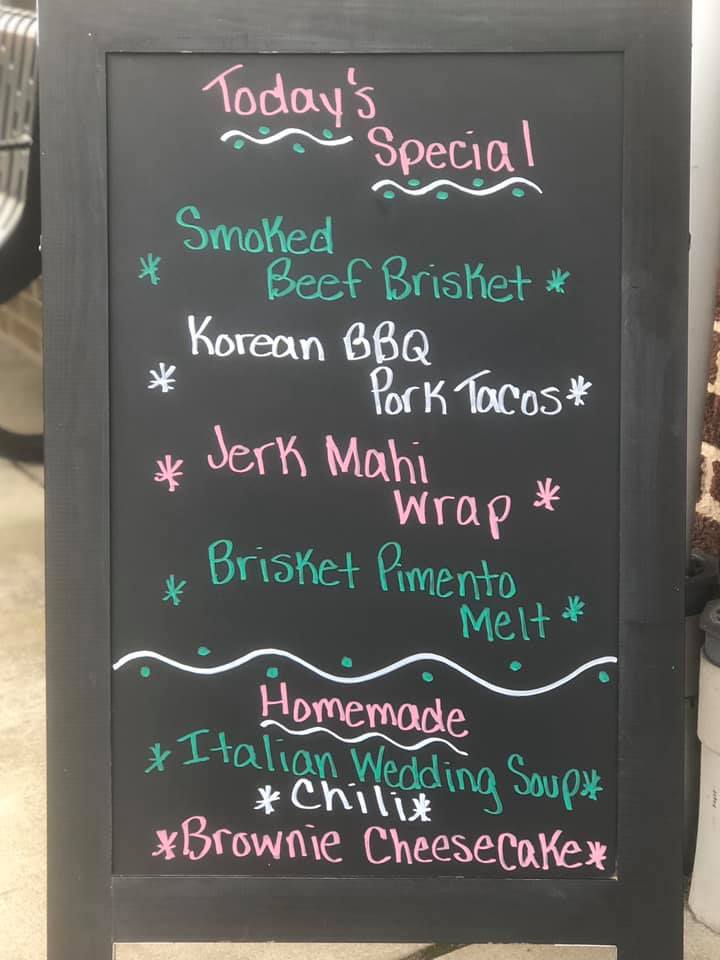 Today's
Special
Smoked
* Beef Brisket *
Korean BBQ
* Pork Tacos *
* Jerk Mahi
Wrap *
* Brisket Pimento
Melt *
Homemade
* Italian Wedding Soup *
* Chili *
* Brownie Cheesecake *